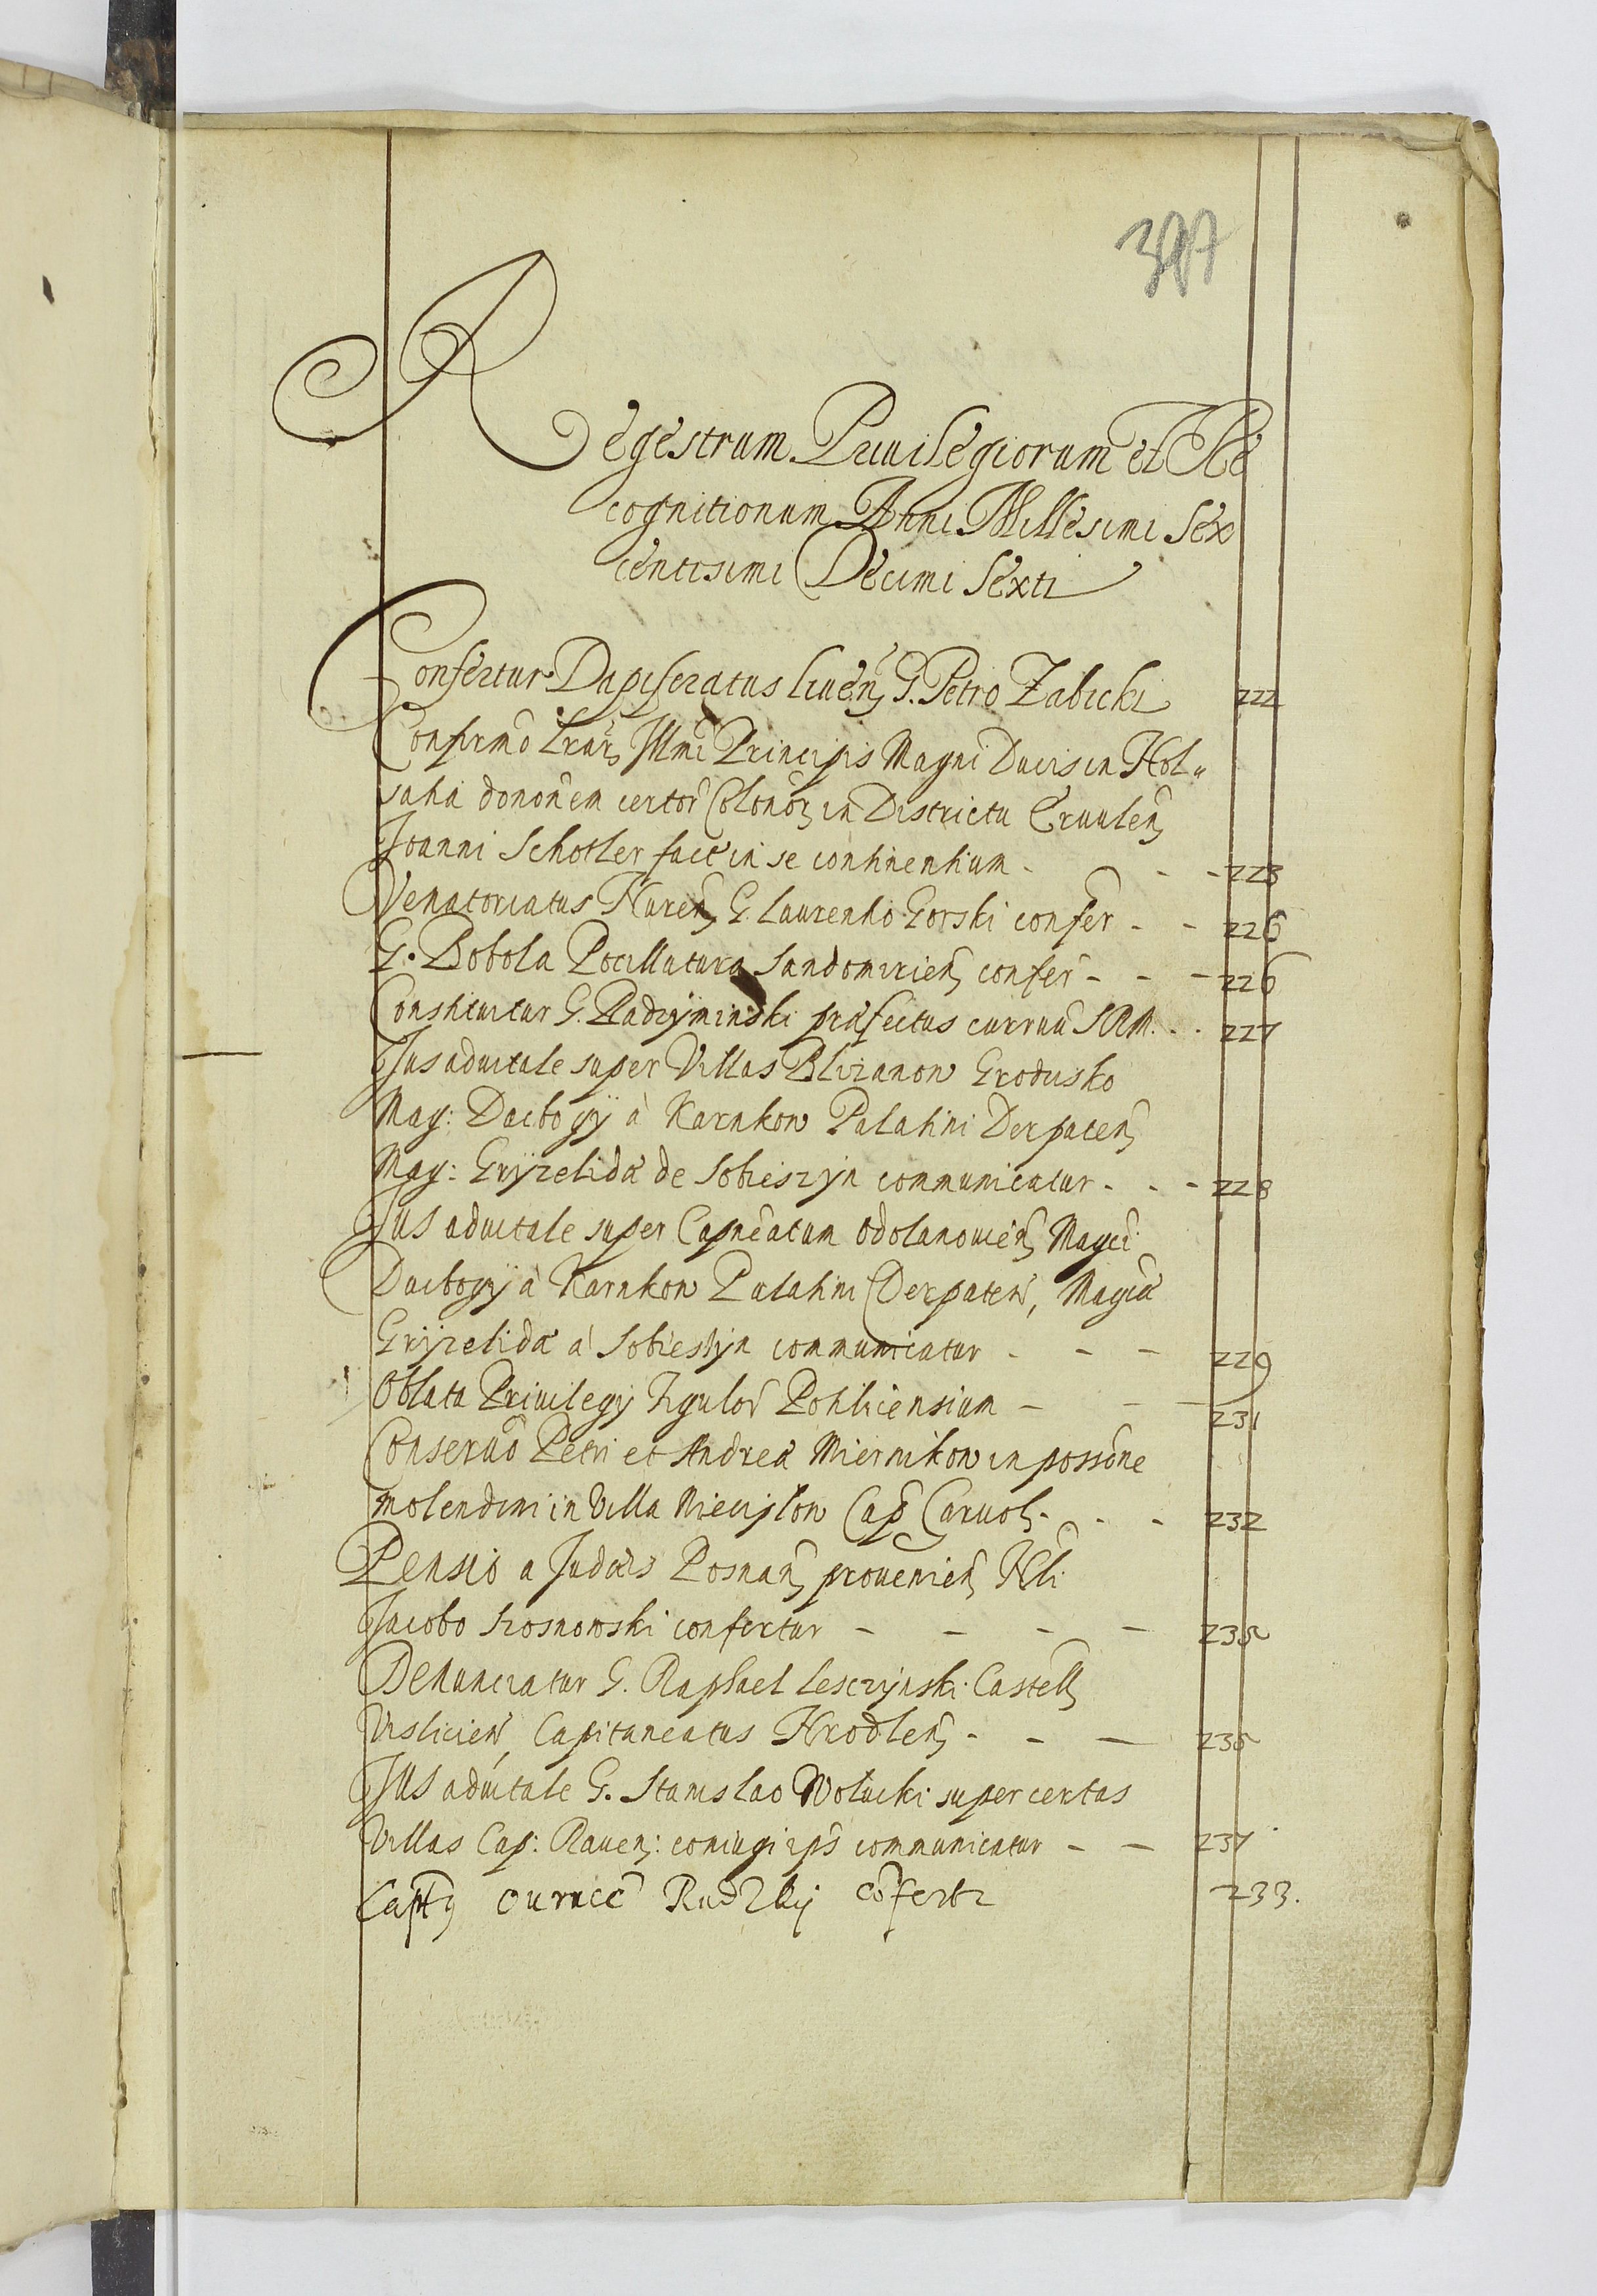 397
Regestrum Privilegiorum et Re
cognitionum Anni Millesimi Sex
centisimi Decimi Sexti
Confertur Dapiferatus Liuen G. Petro Zabicki 222
Confirmo Lrar Illmi Principis Magni Ducis in Hol
satia dononem certor Colonor in Districtu
Joanni Schotler fact in se continentium - - - 223
Venatoriatus Nuren G. Laurentio Gorski confer - - 226
G. Bobola Pocillatura Sandomirien confer - - - 226
Constituitur G. Radzyminski præfectus curruu SRM. - - 227
Jus aduitale super Villas Blizanow Grodzisko
Mag: Dacbogÿ à Karnkow Palatini Derpaten
Mag: Gryzelidæ de Sobieszyn communicatur - - - 228
Jus aduitale super Capneatum Odolanouien Magci
Dacbogÿ à Karnkow Palatini Derpaten, Magcæ
Gryzelidæ à Sobieszyn communicatur - - - 229
Oblata Priuilegÿ Figulor Poktliciensium - - - 231
Conseruo Petri et Andreæ Miernikow in possone
molendini in Villa Cap - - - 232
Pensio a Judæis Posnan prouenien Nli
Jacobo Krosnowski confertur - - - - 235
Denunciatur G. Raphael Lesczynski Castell
Vislicien, Capitaneatus Hrodlen - - - 235
Jus aduitale G. Stanislao Wolucki super certas
Villas Cap: Rauen: coniugi ips communicatur - - 237
Capt Rudzky cofertr 233.